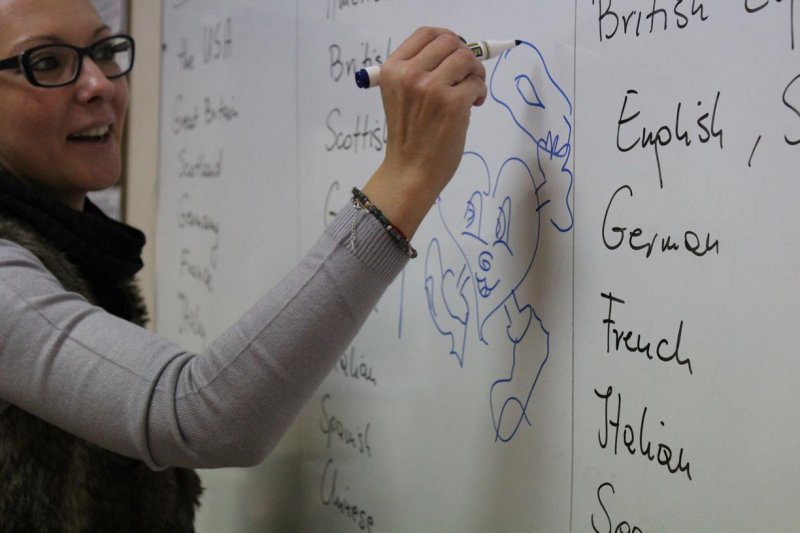 the USA
Great Britain
Scotland
Germany
France
British
Scottish
Italian
Spanish
Chinese
British
English, S
German
French
Italian
Spa